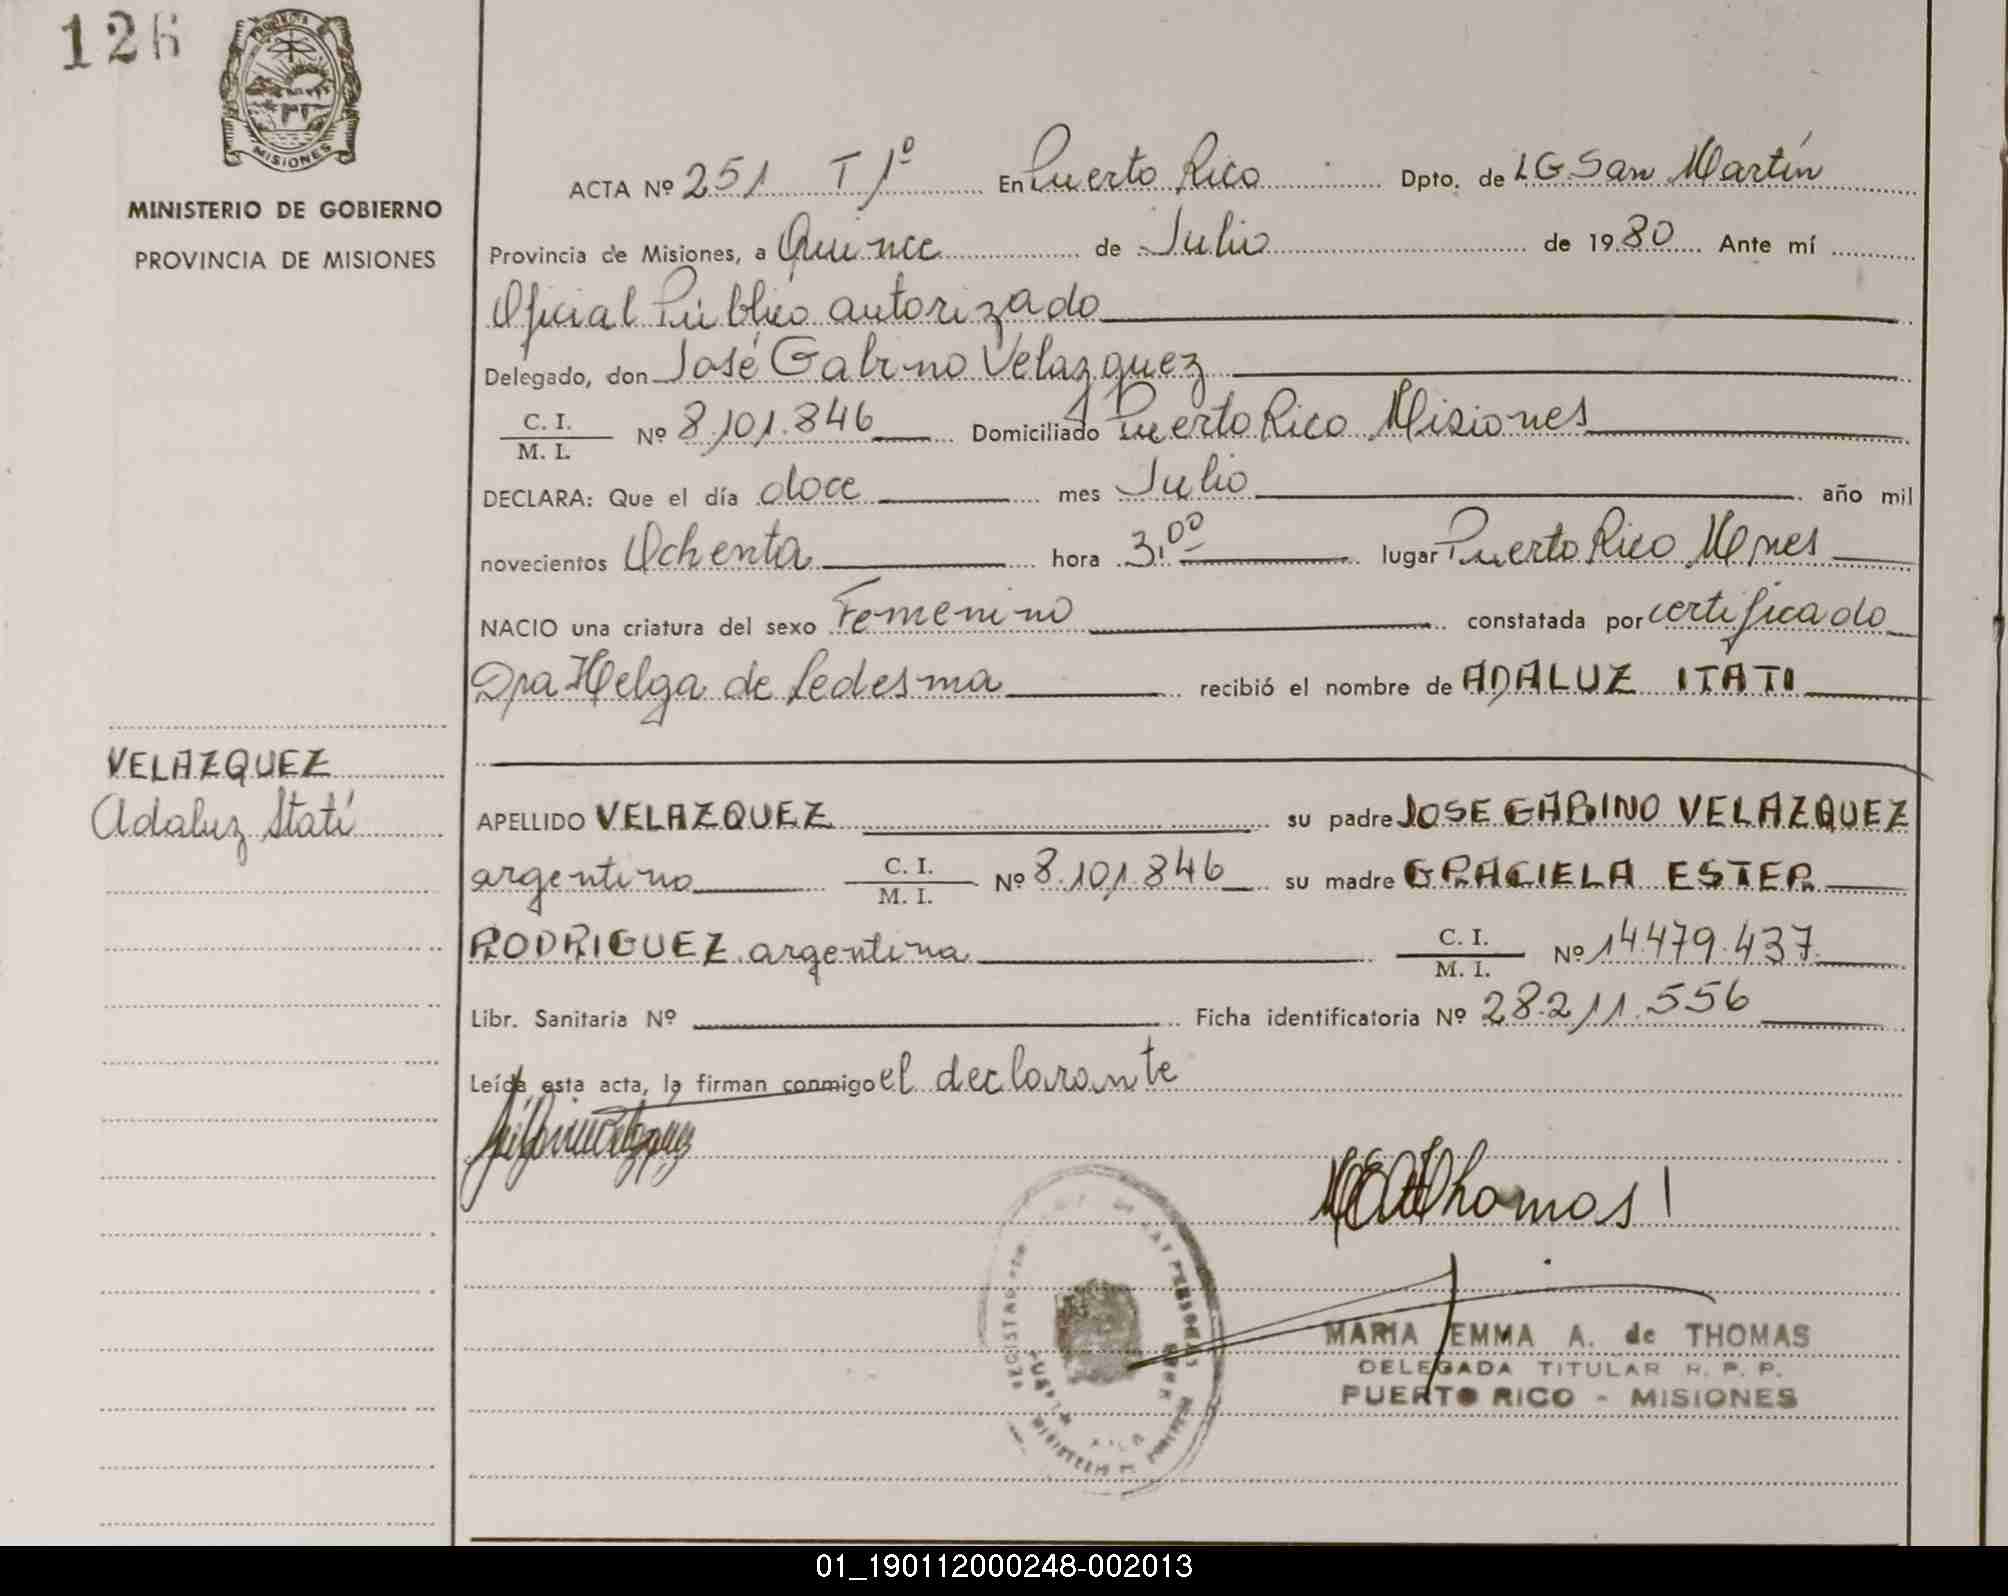 126
PROVINCIA
MISIONES
MINISTERIO DE GOBIERNO
PROVINCIA DE MISIONES
ACTA Nº 251 T 1º En Puerto Rico Dpto. de LG San Martín
Provincia de Misiones, a Quince de Julio de 1980 Ante mí
Oficial Público autorizado
Delegado, don José Gabino Velazquez
C. I.
M. I. Nº 8.101.846 Domiciliado Puerto Rico Misiones
DECLARA: Que el día doce mes Julio año mil
novecientos Ochenta hora 3,00 lugar Puerto Rico Mnes
NACIO una criatura del sexo Femenino constatada por certificado
Dra Helga de Ledesma recibió el nombre de ADALUZ ITATI
VELAZQUEZ
Adaluz Itatí
APELLIDO VELAZQUEZ su padre JOSE GABINO VELAZQUEZ
argentino C. I.
M. I. Nº 8.101.846 su madre GRACIELA ESTER
RODRIGUEZ argentina C. I.
M. I. Nº 14.479.437
Libr. Sanitaria Nº Ficha identificatoria Nº 28.211.556
Leída esta acta, la firman conmigo el declarante
MARIA EMMA A. de THOMAS
DELEGADA TITULAR R. P. P.
PUERTO RICO - MISIONES
01_190112000248-002013